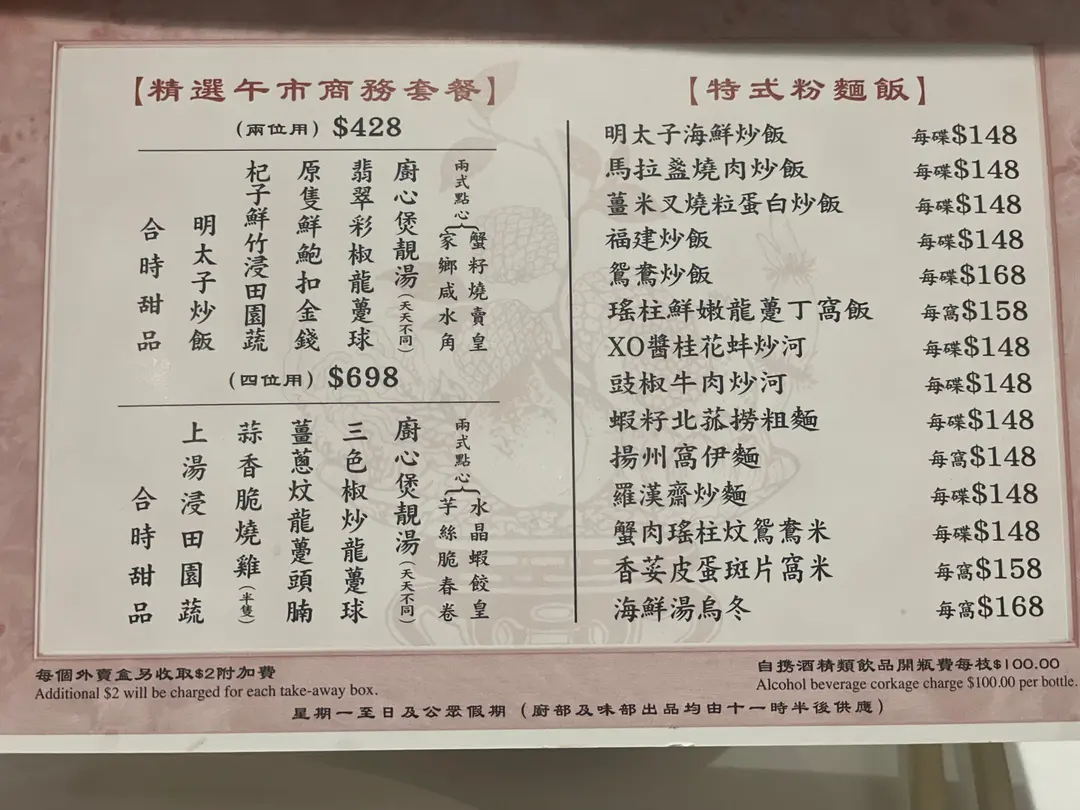 【精選午市商務套餐】
(兩位用) $428
兩式點心{蟹籽燒賣皇
家鄉咸水角
廚心煲靚湯(天天不同)
翡翠彩椒龍躉球
原隻鮮鮑扣金錢
杞子鮮竹浸田園蔬
明太子炒飯
合時甜品
(四位用) $698
兩式點心{水晶蝦餃皇
芋絲脆春卷
廚心煲靚湯(天天不同)
三色椒炒龍躉球
薑蔥炆龍躉頭腩
蒜香脆燒雞(半隻)
上湯浸田園蔬
合時甜品
【特式粉麵飯】
明太子海鮮炒飯 每碟$148
馬拉盞燒肉炒飯 每碟$148
薑米叉燒粒蛋白炒飯 每碟$148
福建炒飯 每碟$148
鴛鴦炒飯 每碟$168
瑤柱鮮嫩龍躉丁窩飯 每窩$158
XO醬桂花蚌炒河 每碟$148
豉椒牛肉炒河 每碟$148
蝦籽北菰撈粗麵 每碟$148
揚州窩伊麵 每窩$148
羅漢齋炒麵 每碟$148
蟹肉瑤柱炆鴛鴦米 每碟$148
香荽皮蛋斑片窩米 每窩$158
海鮮湯烏冬 每窩$168
每個外賣盒另收取$2附加費
Additional $2 will be charged for each take-away box.
自携酒精類飲品開瓶費每枝$100.00
Alcohol beverage corkage charge $100.00 per bottle.
星期一至日及公眾假期 (廚部及味部出品均由十一時半後供應)